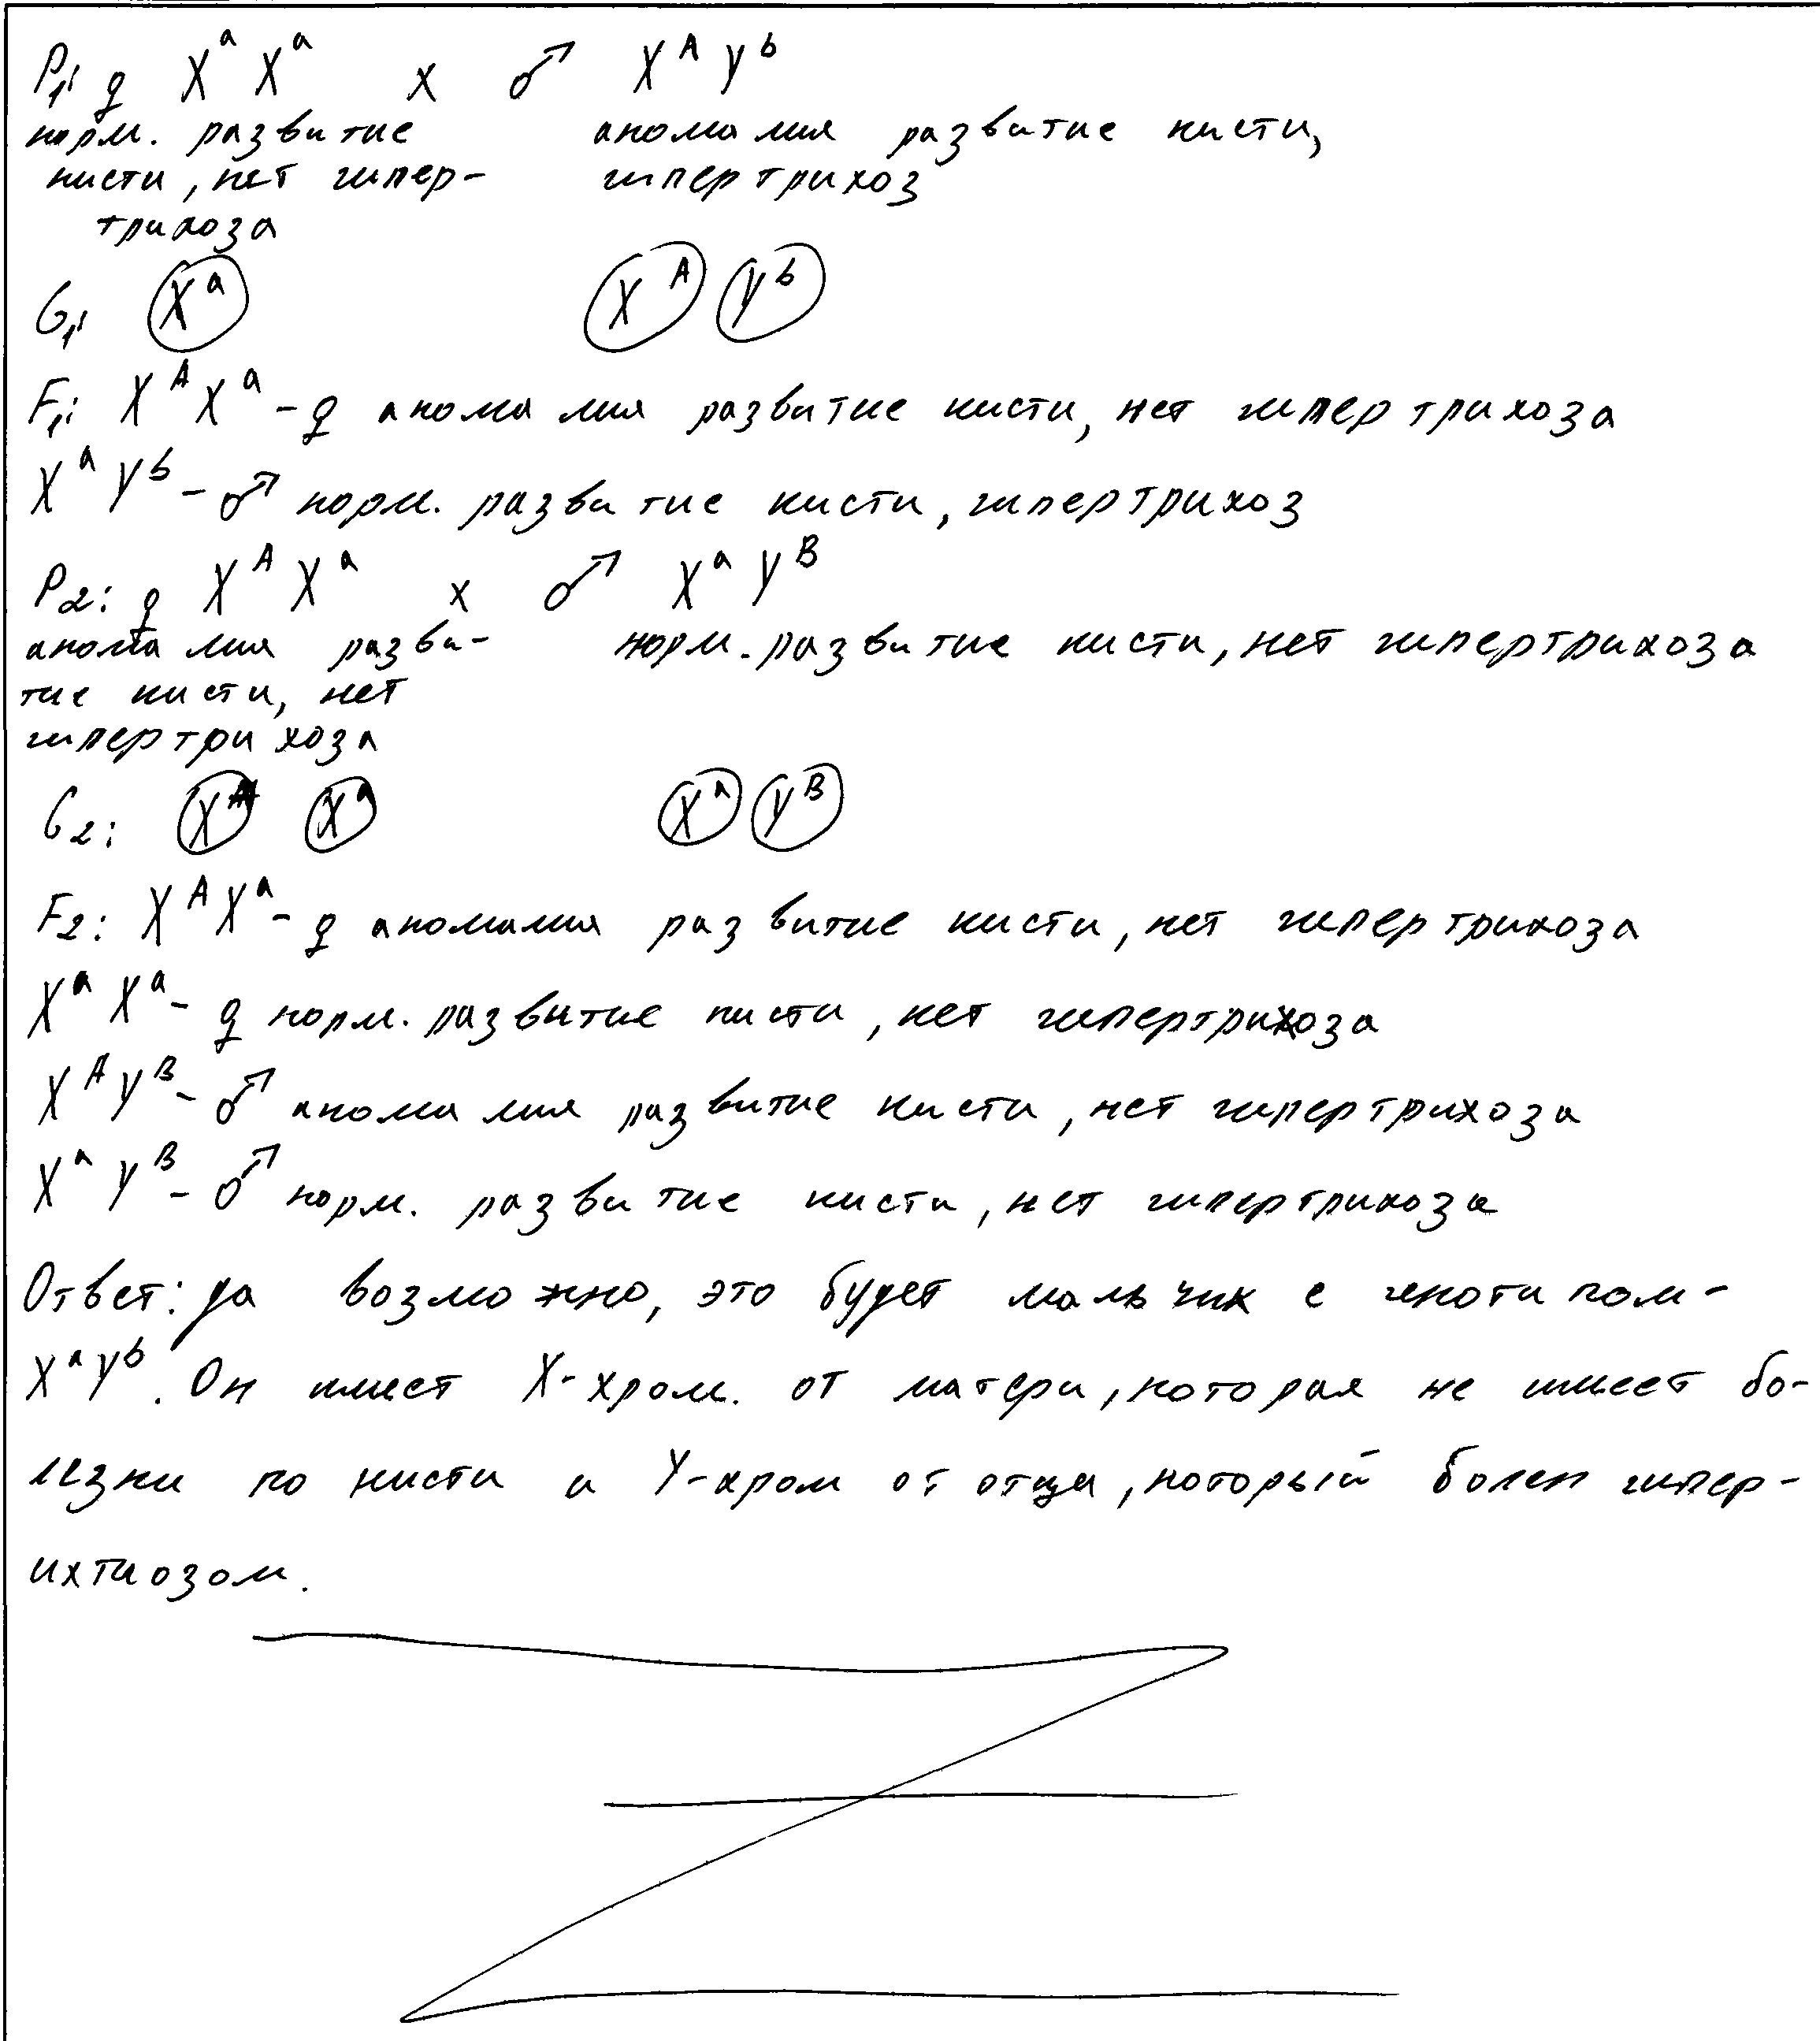 P₁: ♀ XᵃXᵃ x ♂ XᴬYᵇ
норм. развитие аномалия развитие кисти,
кисти, нет гипер- гипертрихоз
трихоза
G₁: Xᵃ Xᴬ Yᵇ
F₁: XᴬXᵃ - ♀ аномалия развитие кисти, нет гипертрихоза
XᵃYᵇ - ♂ норм. развитие кисти, гипертрихоз
P₂: ♀ XᴬXᵃ x ♂ XᵃYᴮ
аномалия разви- норм. развитие кисти, нет гипертрихоза
тие кисти, нет
гипертрихоза
G₂: Xᴬ Xᵃ Xᵃ Yᴮ
F₂: XᴬXᵃ - ♀ аномалия развитие кисти, нет гипертрихоза
XᵃXᵃ - ♀ норм. развитие кисти, нет гипертрихоза
XᴬYᴮ - ♂ аномалия развитие кисти, нет гипертрихоза
XᵃYᴮ - ♂ норм. развитие кисти, нет гипертрихоза
Ответ: да возможно, это будет мальчик с генотипом -
XᵃYᵇ. Он имеет X-хром. от матери, которая не имеет бо-
лезни по кисти и Y-хром от отца, который болен гипер-
ихтиозом.